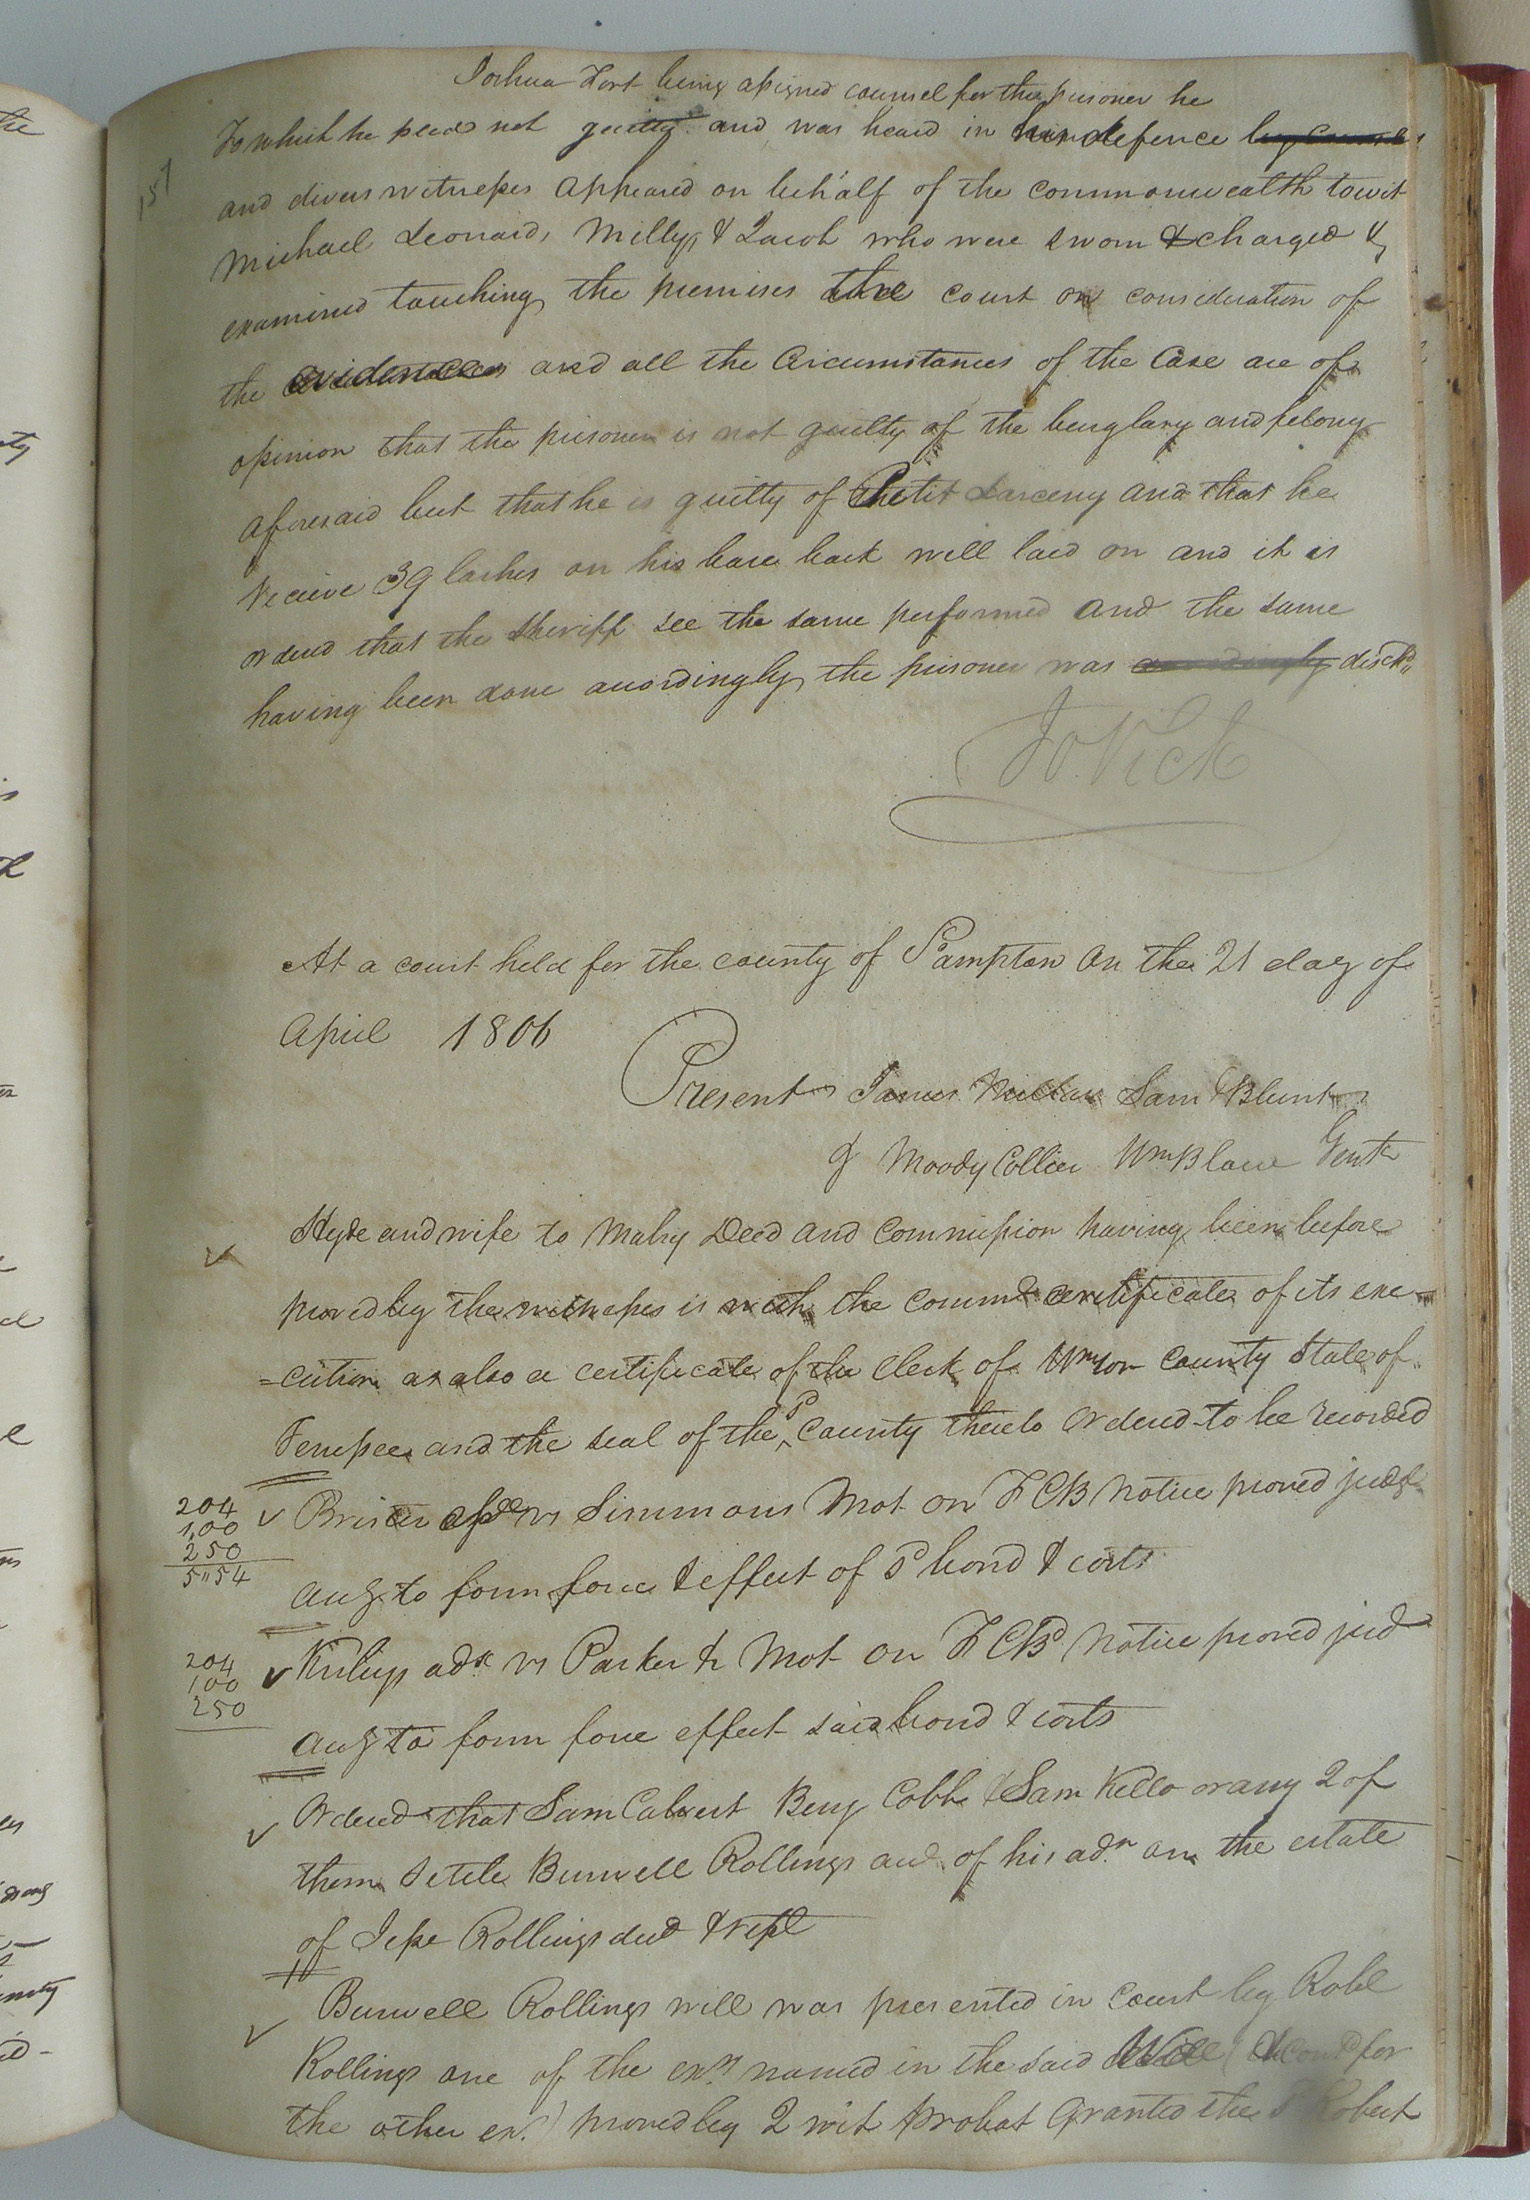 Joshua Fort being assigned counsel for the prisoner he
157
To which he plead not guilty and was heard in his defence by counsel
and divers witnesses appeared on behalf of the commonwealth towit
Michael Leonard, Milly, & Jacob who were sworn & charged &
examined touching the premises the court on consideration of
the evidences and all the Circumstances of the Case are of
opinion that the prisoner is not guilty of the burglary and felony
aforesaid but that he is guilty of Petit Larceny and that he
receive 39 lashes on his bare back well laid on and it is
orderd that the Sheriff see the same performed and the same
having been done accordingly the prisoner was accordingly dischd,,
Jo. Vick
At a court held for the county of Sampton on the 21 day of
April 1806
Present James Sam Blunt
& Moody Collier Wm Blow Gent
Hyde and wife to Mabry Deed and Commission having been before
proved by the witnesses is with the comms certificate of its exe-
=cution as also a certificate of the Clerk of Wmson County State of
Tennessee and the seal of the sd County thereto Orderd to be recorded
204
100
250
5"54
vs Simmons Mot on F C B notice proved judgt
to form force & effect of sd bond & costs
204
100
250
adx vs Parker & Mot on F C Bd notice proved jud
to form force effect said bond & costs
Orderd that Sam Calvert Benj Cobb & Sam Kello or any 2 of
them Settle Burwell Rollings of his adn on the estate
of Jesse Rollings decd & rept
Burwell Rollings will was presented in Court by Robt
Rollings one of the exrs named in the said Will ( for
the other exr) proved by 2 wit & probat Granted the sd Robert